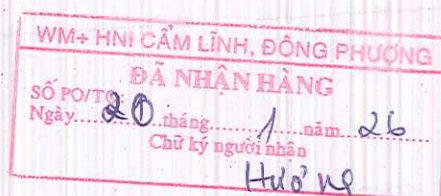 WM+ HNI CẨM LĨNH, ĐÔNG PHƯỢNG
ĐÃ NHẬN HÀNG
SỐ PO/TO
Ngày.....20.....tháng.....1.....năm..26
Chữ ký người nhân
Hưởng